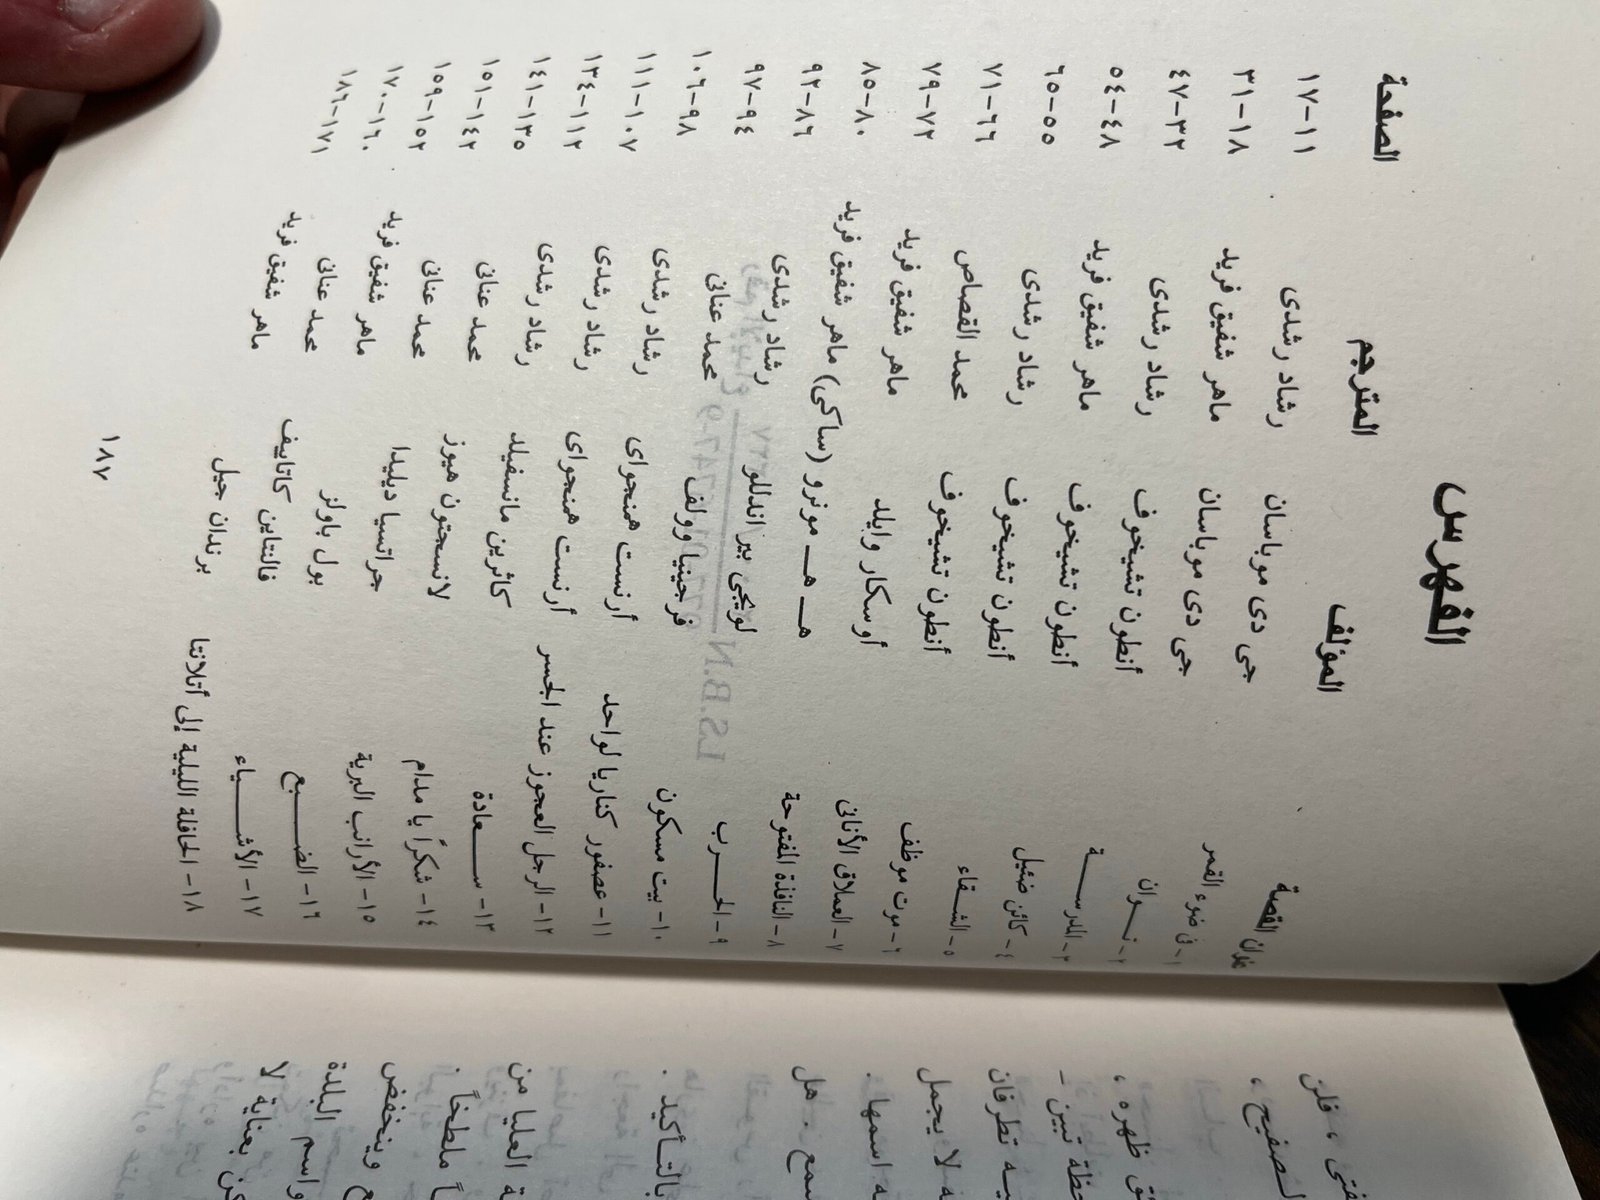 الفهرس
عنوان القصة المؤلف المترجم الصفحة
١- في ضوء القمر جى دى موباسان رشاد رشدى ١١-١٧
٢- جى دى موباسان ماهر شفيق فريد ١٨-٣١
٣- المدرســـة أنطون تشيخوف رشاد رشدى ٣٢-٤٧
٤- كائن ضئيل أنطون تشيخوف ماهر شفيق فريد ٤٨-٥٤
٥- الشــقاء أنطون تشيخوف رشاد رشدى ٥٥-٦٥
٦- موت موظف أنطون تشيخوف محمد القصاص ٦٦-٧١
٧- العملاق الأنانى أوسكار وايلد ماهر شفيق فريد ٧٢-٧٩
٨- النافذة المفتوحة هـ ـ هـ ـ مونرو (ساكى) ماهر شفيق فريد ٨٠-٨٥
٩- الحـــرب لويجى بيراندللو رشاد رشدى ٨٦-٩٢
١٠- بيت مسكون فرجينيا وولف محمد عنانى ٩٤-٩٧
١١- عصفور كناريا لواحد أرنست همنجواى رشاد رشدى ٩٨-١٠٦
١٢- الرجل العجوز عند الجسر أرنست همنجواى رشاد رشدى ١٠٧-١١١
١٣- ســـعادة كاثرين مانسفيلد رشاد رشدى ١١٢-١٣٤
١٤- شكراً يا مدام لانسجتون هيوز محمد عنانى ١٣٥-١٤١
١٥- الأرانب البرية جراتسيا ديليدا محمد عنانى ١٤٢-١٥١
١٦- الضـــبع بول باولز ماهر شفيق فريد ١٥٢-١٥٩
١٧- الأشـــياء فالنتاين كاتاييف محمد عنانى ١٦٠-١٧٠
١٨- الحافلة الليلية إلى أتلانتا برندان جيل ماهر شفيق فريد ١٧١-١٨٦
١٨٧
، فلن
ظهره ،
تبين -
تطرفان
لا يجمل
اسمها .
. هل
بالتأكيد .
العليا من
ملطخاً .
وينخفض
واسم البلدة
بعناية لا